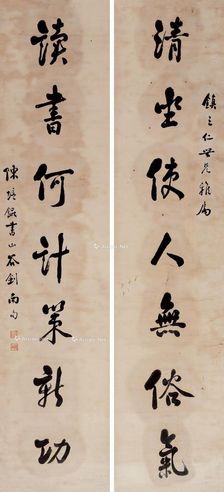 鎮之仁世兄雅屬
清坐使人無俗氣
讀書何計策新功
陳培錕書山谷劍南句